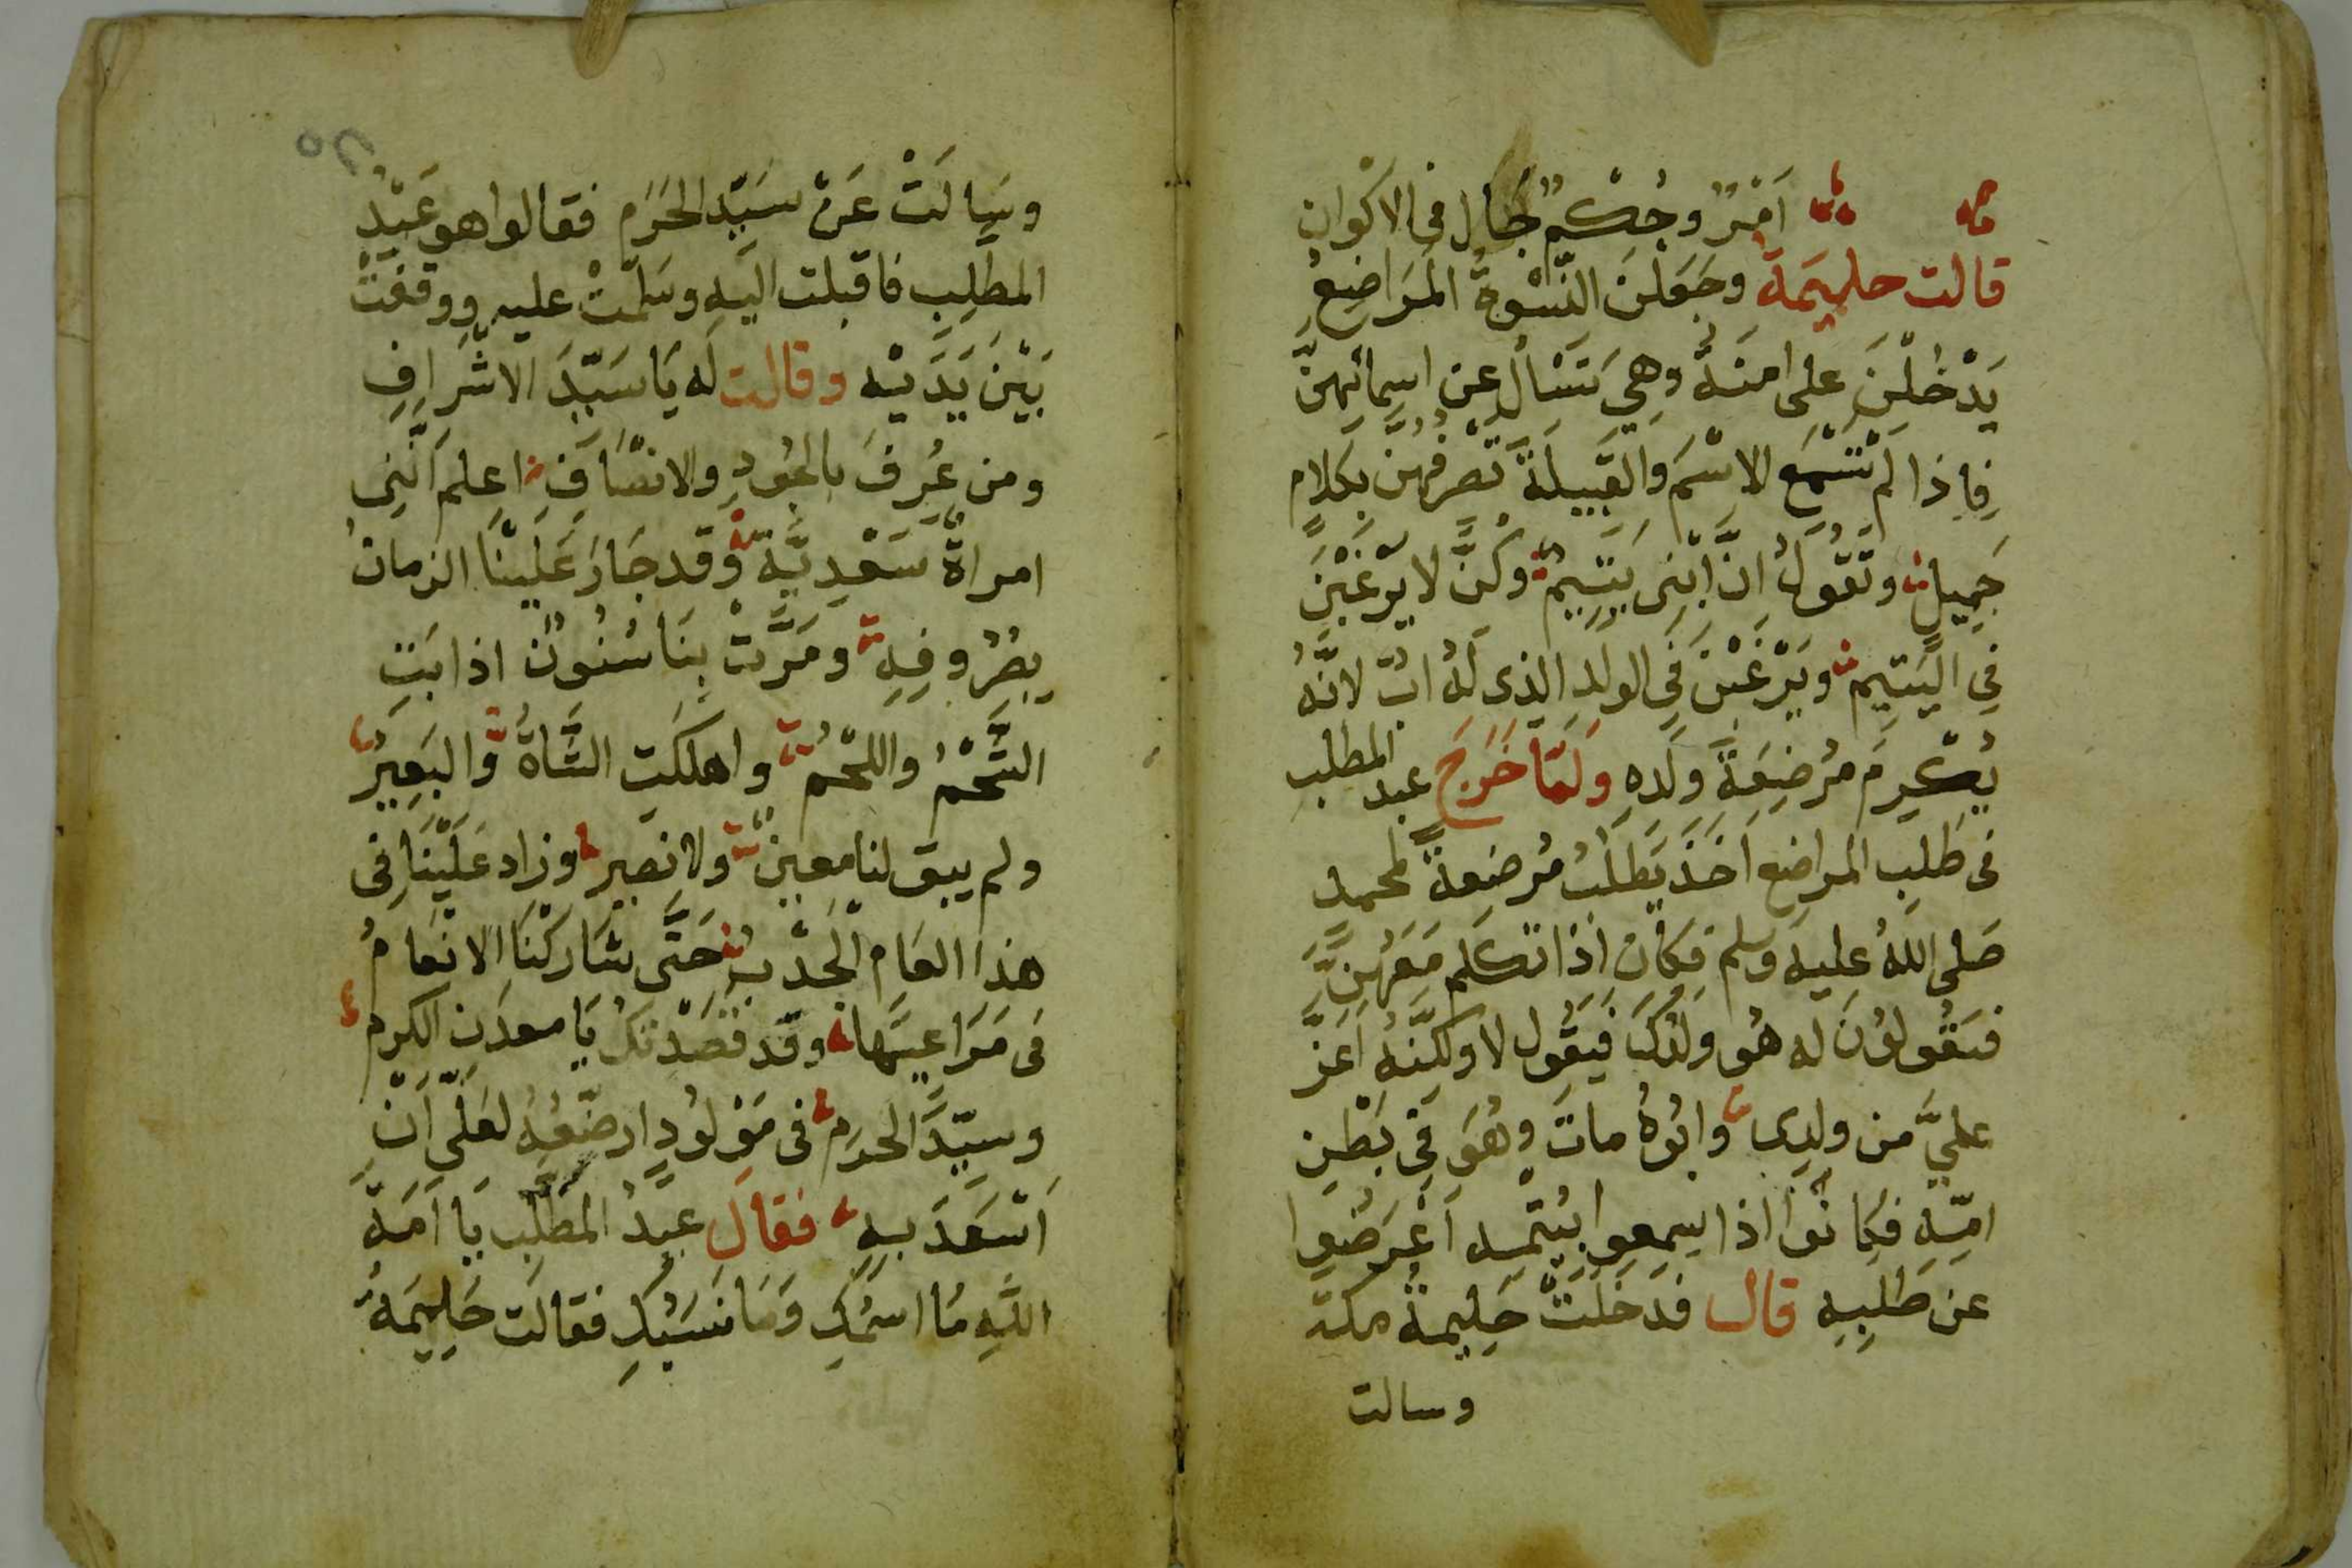 اَمْرٌ وحُكْمٌ جَالَ فى الاكْوان
قالت حليمَة وجَعَلنَ النّسْوةُ المَرَاضِعُ
يَدْخُلْنَ على امنَةَ وهِيَ تَسْال عن اسمائهنّ
فاِذا لم تَسْمَع الاسْمَ والقَبِيلَةَ تصرفُهُنّ بكلامٍ
جَمِيلٍ وتَقُولُ انَّ ابْنِى يَتِيمٌ وكُنَّ لا يَرْغَبْنَ
فِي اليَتِيم ويَرْغَبْنَ فِي الولدِ الذى لَهُ ابٌ لانّهُ
يُكْرِمَ مُرْضِعَةَ ولَدِهِ وَلَمَّا خَرَجَ عبد المطلب
فى طَلَبِ المراضِع اَخَذَ يَطلُبُ مُرْضِعةً لمحمد
صَلى اللهُ عليه وسلم فكانَ اِذا تكَلم مَعَهُنَّ
فيَقُولوُنَ له هُو ولَدُكَ فيَقُول لا ولكنّهُ اَعَزّ
عليَّ من ولدِى وابُوهُ ماتَ وهُوَ فى بَطْنِ
امّهِ فكانُوا اذا سمِعوا بيُتْمِهِ اَعْرَضُوا
عن طَلَبِهِ قال فدَخَلَتْ حَلِيمةُ مكة
وسالت
٢٥
وسَالَتْ عَنْ سَيِّدِ الحَرَم فقالوا هو عَبْدُ
المطلِبِ فاقبلت اليهِ وسَلَّمَتْ عليه ووقفتْ
بَيْنَ يَدَيْهِ وقالت له يَا سَيِّدَ الاشْرَافِ
ومن عُرِفَ بالجُودِ والانصَافِ اعلم اَنَّنِى
امراةٌ سَعْدِيَّةٌ وقد جَارَ عَلَيْنَا الزمانُ
بصُرُوفِهِ ومَرَّتْ بِنَا سُنُونٌ اذابَتِ
الشَّحْمُ واللحْمُ واهلكَت الشَّاةُ والبَعِيرُ
ولم يبق لنا معينٌ ولا نصيرٌ وزاد عَلَيْنَا فى
هذا العَام الجَدْبُ حَتَّى شَارَكْنَا الانعَامُ
فى مَرَاعيهَا وقد قصَدْتكُ يَا معدَن الكرم
وسيّدَ الحرَم فى مَوْلُودٍ ارضّعُهُ لعَلّى اَنْ
اَسْعَدَ بهِ فقالَ عبدُ المطلِب يا اَمَةَ
اللهِ مَا اسْمُكِ وَمَا نَسَبُكِ فقالَت حَلِيمَةُ